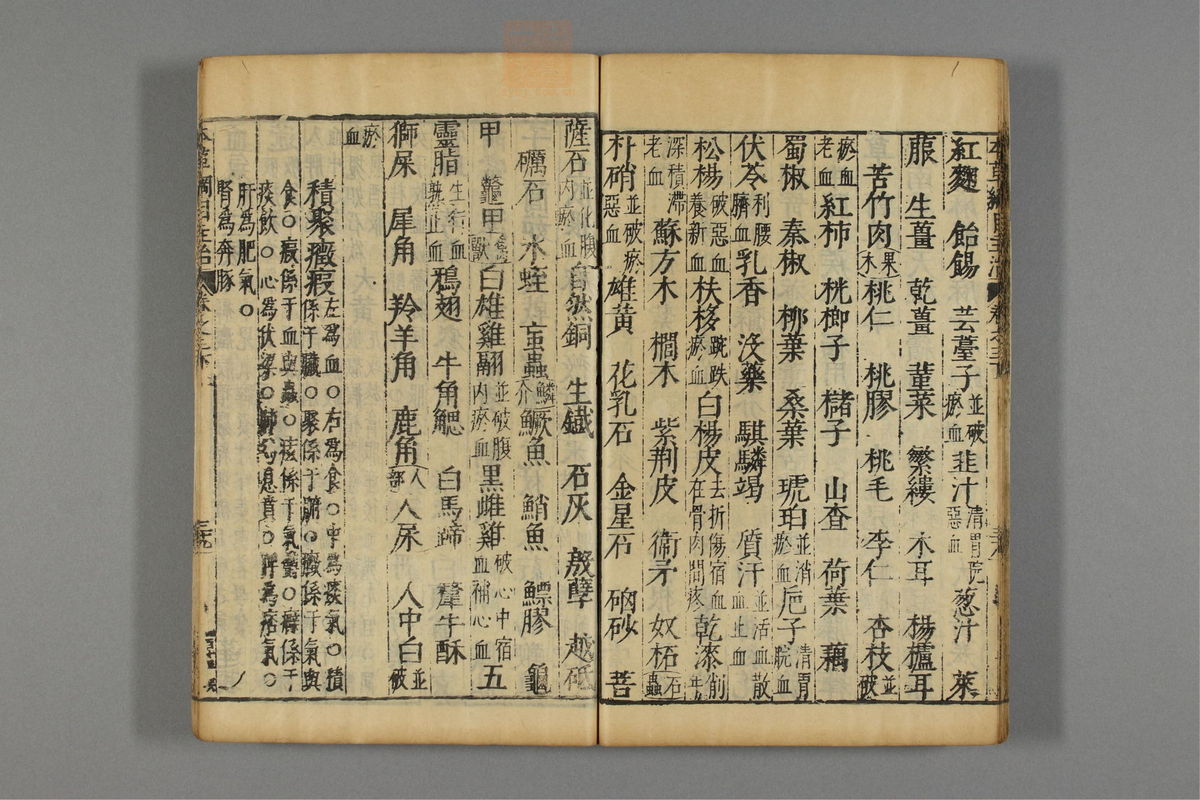 紅麴 飴餳 芸薹子並破瘀血 韭汁清胃脘惡血 葱汁 萊
菔 生薑 乾薑 蓳菜 蘩縷 木耳 楊櫨耳
苦竹肉 果木 桃仁 桃膠 桃毛 李仁 杏枝並破
瘀血老血 紅柿 桄榔子 櫧子 山查 荷葉 藕
蜀椒 秦椒 柳葉 桑葉 琥珀並消瘀血 巵子清胃脘血
伏苓利腰臍血 乳香 沒藥 騏驎竭 質汗並活血散血止血
松楊破惡血養新血 扶栘踠跌瘀血 白楊皮去折傷宿血在骨肉間疼 乾漆削年
深積滯老血 蘇方木 櫚木 紫荆皮 衛矛 奴柘 石蟲
朴硝並破瘀惡血 雄黃 花乳石 金星石 硇砂 菩
薩石並化腹內瘀血 自然銅 生鐵 石灰 殷孽 越砥
礪石 水蛭 䖟蟲 鱗介 鱖魚 鮹魚 鰾膠 龜
甲 鼈甲 禽獸 白雄雞翮並破腹內瘀血 黑雌雞破心中宿血補心血 五
靈脂生行血熟止血 鴉翅 牛角䚡 白馬蹄 犛牛酥
獅屎 犀角 羚羊角 鹿角 人部 人尿 人中白並破
瘀血
積聚癥瘕左爲血○右爲食○中爲痰氣○積係于臟○聚係于腑○癥係于氣與
食○瘕係于血與蟲○痃係于氣鬱○癖係于
痰飲○心爲伏梁○肺爲息賁○脾爲痞氣○
肝爲肥氣○
腎爲奔豚